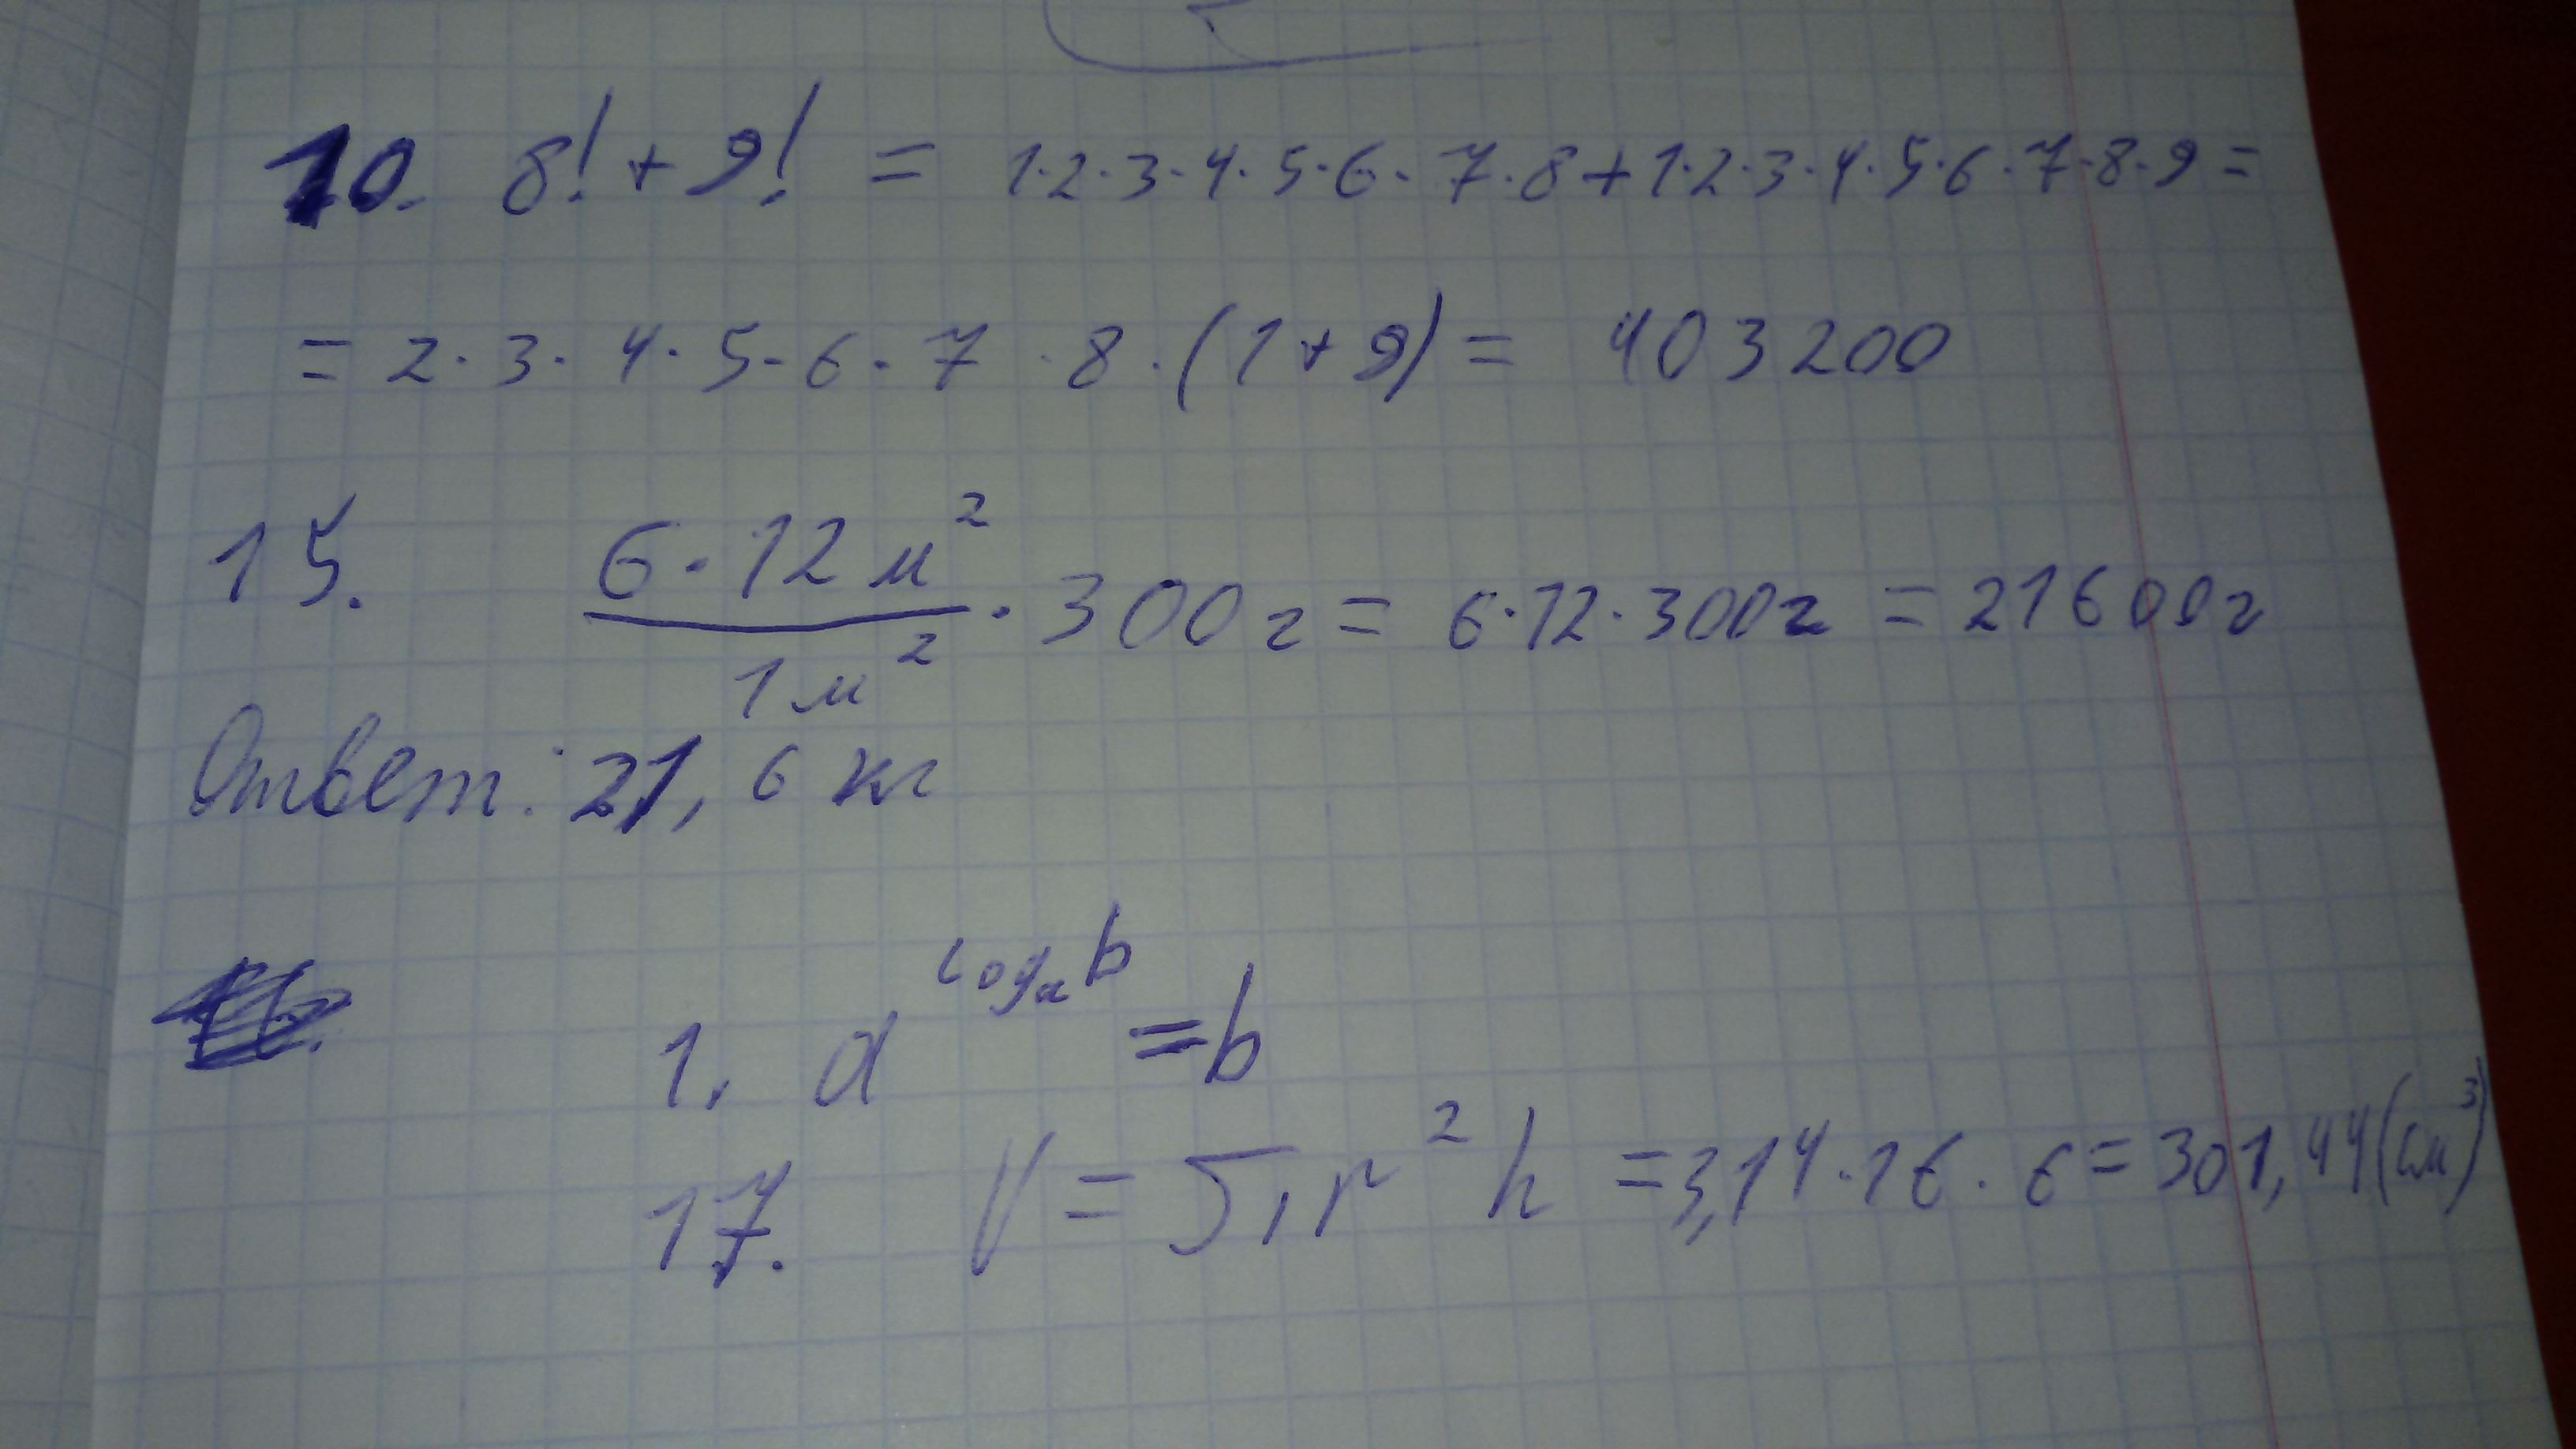 10. 8! + 9! = 1·2·3·4·5·6·7·8+1·2·3·4·5·6·7·8·9=
= 2·3·4·5·6·7·8·(1+9)= 403200
15. (6·12 м²)/(1 м²) · 300 г = 6·12·300г = 21600г
Ответ: 21,6 кг
1. a^(log_a b) = b
17. V = πr²h = 3,14·16·6 = 301,44 (см³)